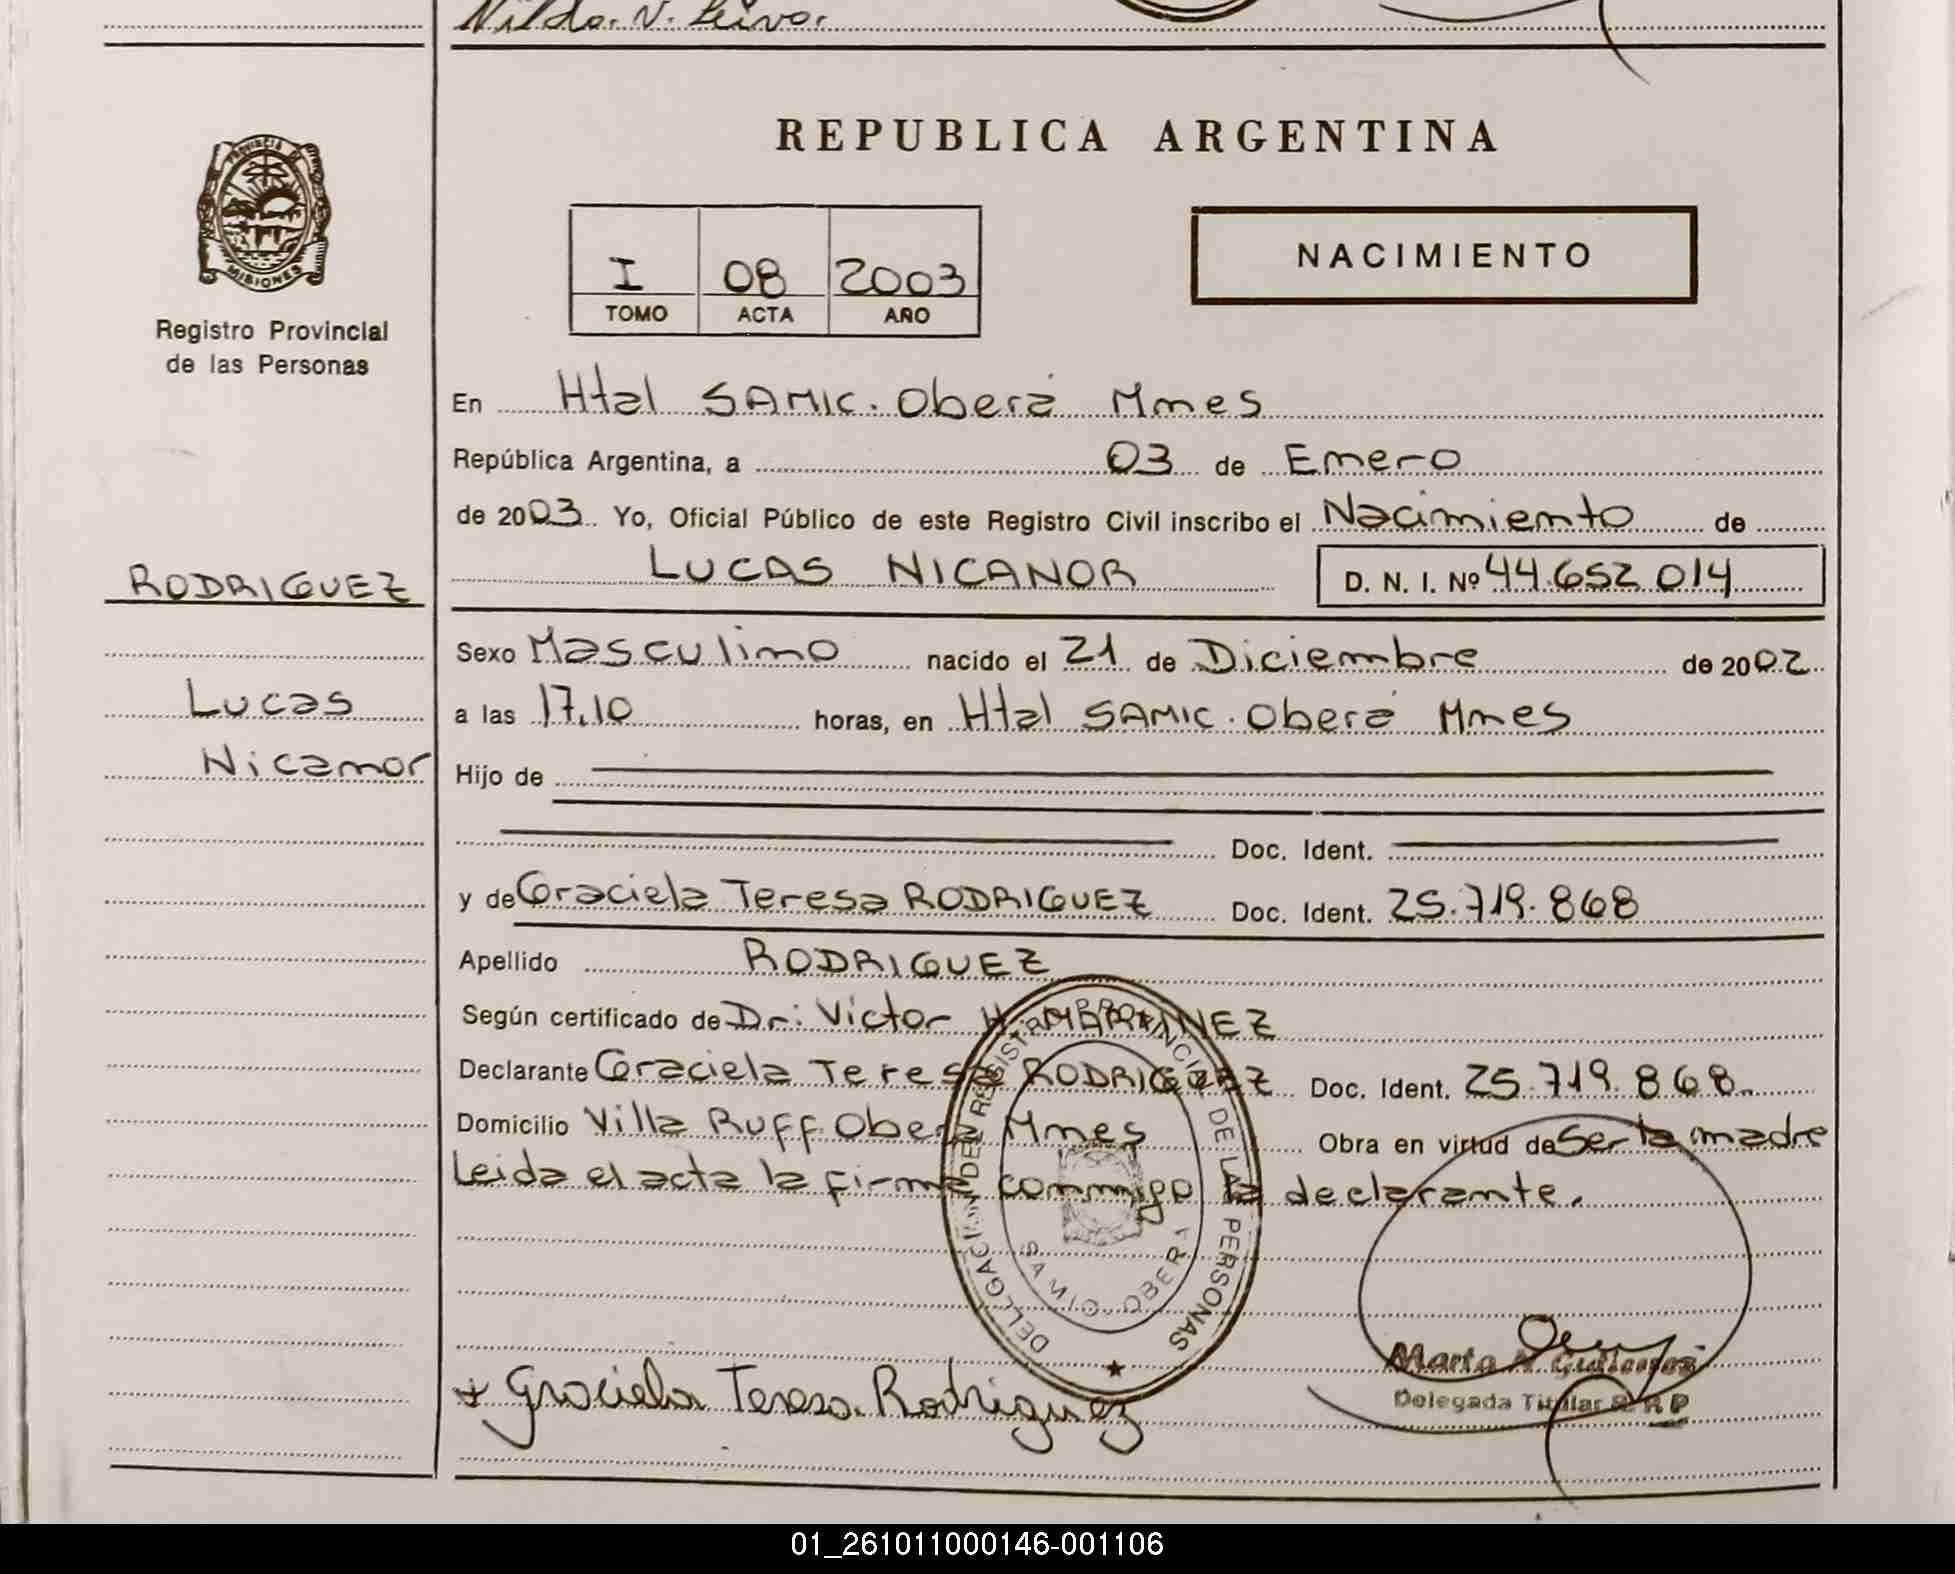 Nilda. N. Leiva.
PROVINCIA DE
MISIONES
Registro Provincial
de las Personas
RODRIGUEZ
Lucas
Nicanor
REPUBLICA ARGENTINA
I 08 2003
TOMO ACTA AÑO
NACIMIENTO
En Htal SAMIC. Oberá Mnes
República Argentina, a 03 de Enero
de 2003 Yo, Oficial Público de este Registro Civil inscribo el Nacimiento de
LUCAS NICANOR D. N. I. Nº 44.652.014
Sexo Masculino nacido el 21 de Diciembre de 2002
a las 17.10 horas, en Htal SAMIC. Oberá Mnes
Hijo de
Doc. Ident.
y de Graciela Teresa RODRIGUEZ Doc. Ident. 25.719.868
Apellido RODRIGUEZ
Según certificado de Dr: Victor
Declarante Graciela Teresa RODRIGUEZ Doc. Ident. 25.719.868
Domicilio Villa Ruff. Oberá Mnes Obra en virtud de Ser la madre
Leida el acta la firma conmigo la declarante.
DELEGACION DEL REGISTRO PROVINCIAL DE LAS PERSONAS
SAMIC OBERA
Graciela Teresa Rodriguez
Marta N. Gutierrez
Delegada Titular R. R P
01_261011000146-001106